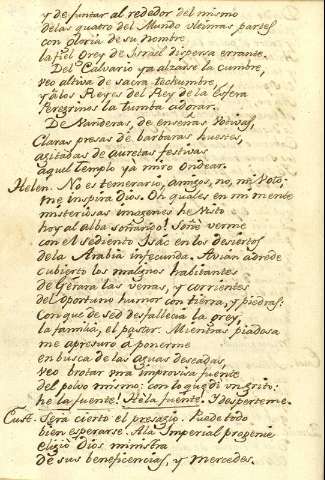 y de juntar al rededor del mismo
de las quatro del Mundo ultimas partes
con gloria de su nombre
la fiel Grey de Israel dispersa errante.
Del Calvario ya alzarse la cumbre,
veo altiva de sacra techumbre,
y a los Reyes del Rey de la Esfera
Peregrinos la tumba adorar.
De Vanderas, de enseñas votivas,
Claras presas de barbaras huestes,
agitadas de auretas festivas
aquel templo ya miro ondear.
Helen. No es temerario, amigos, no, mi Voto;
me inspira Dios. Oh quales en mi mente
misteriosas imagenes he visto
hoy al alba soñando! Soñé verme
con el sediento Isac en los desiertos
de la Arabia infecunda. Avian adrede
cubierto los malignos habitantes
de Gerara las venas, y corrientes
del oportuno humor con tierra, y piedras:
Con que de sed desfallecia la grey,
la familia, el pastor. Mientras piadosa
me apresuro à ponerme
en busca de las aguas deseadas,
veo brotar una improvisa fuente
del polvo mismo: con lo que di un grito:
he la fuente! He la fuente. I desperteme.
Eust. Será cierto el presagio. Puede todo
bien esperarse. A la Imperial progenie
eligió Dios ministra
de sus beneficencias, y mercedes.